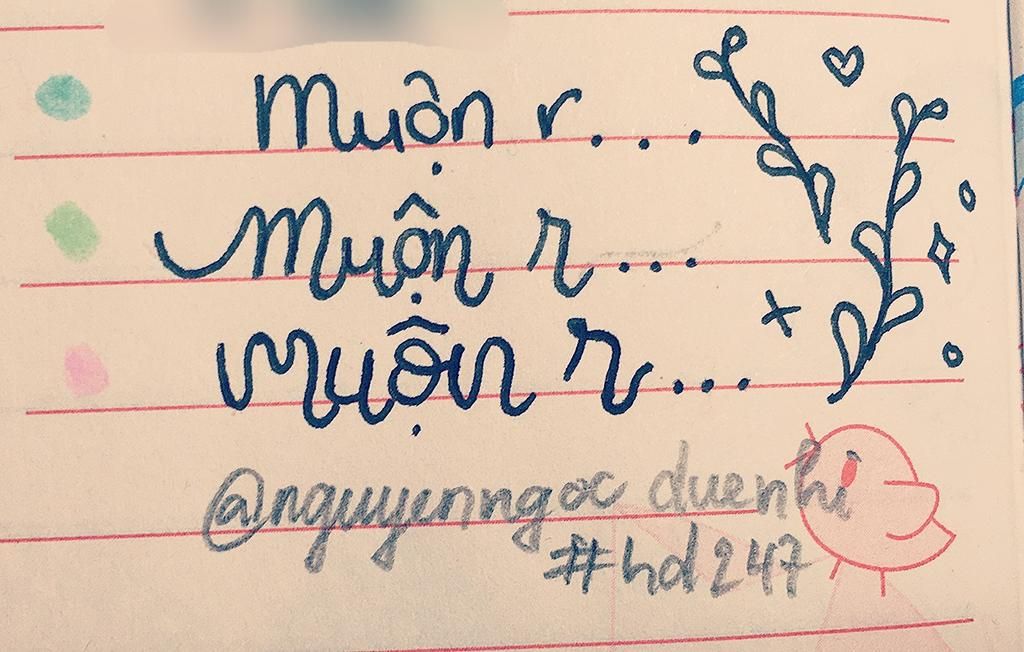 Muộn r...
Muộn r...
Muộn r...
@nguyenngoc duenhi
#hd247